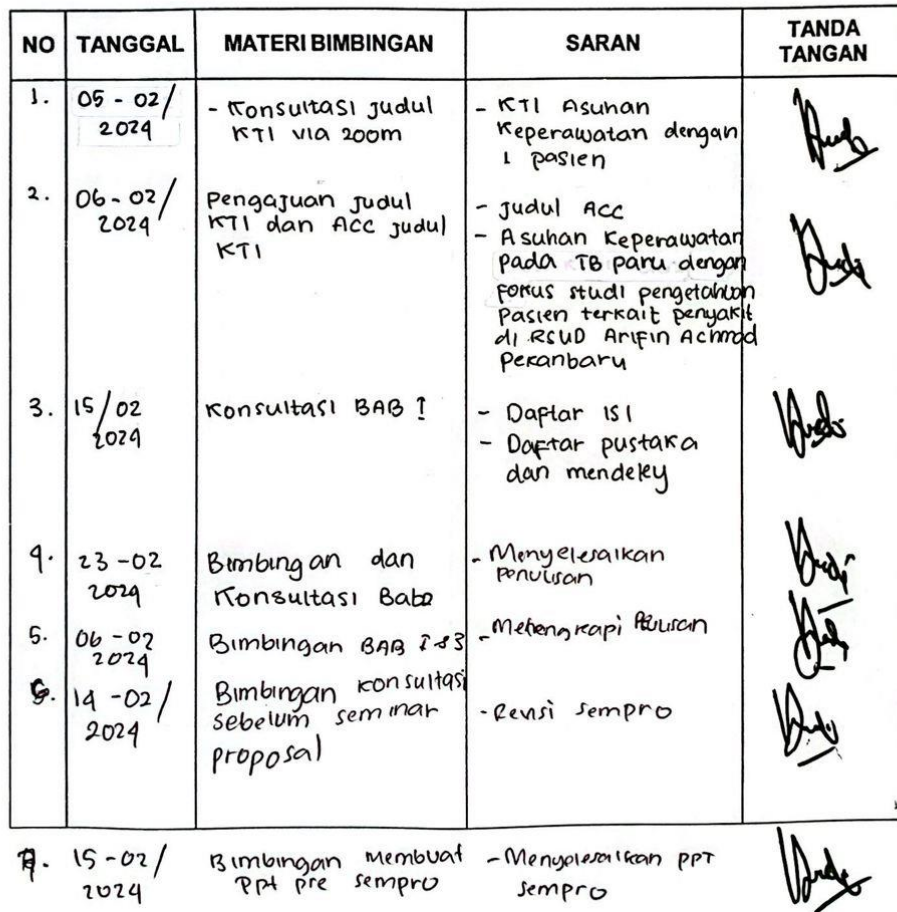 NO TANGGAL MATERI BIMBINGAN SARAN TANDA TANGAN
1. 05 - 02 / 2024
- Konsultasi Judul
KTI via zoom
- KTI Asuhan
Keperawatan dengan
1 pasien
2. 06 - 02 / 2024
Pengajuan Judul
KTI dan ACC Judul
KTI
- Judul ACC
- Asuhan Keperawatan
pada TB paru dengan
Fokus studi pengetahuan
Pasien terkait penyakit
di RSUD Arifin Achmad
Pekanbaru
3. 15 / 02 2024
Konsultasi BAB 1
- Daftar ISI
- Daftar pustaka
dan mendeley
4. 23 - 02 2024
Bimbingan dan
Konsultasi Bab2
- Menyelesaikan
Penulisan
5. 06 - 02 2024
Bimbingan BAB 1 & 3
- Melengkapi
6. 14 - 02 / 2024
Bimbingan konsultasi
sebelum seminar
proposal
- Revisi sempro
7. 15 - 02 / 2024
Bimbingan Membuat
Ppt pre sempro
- Menyelesaikan PPT
sempro